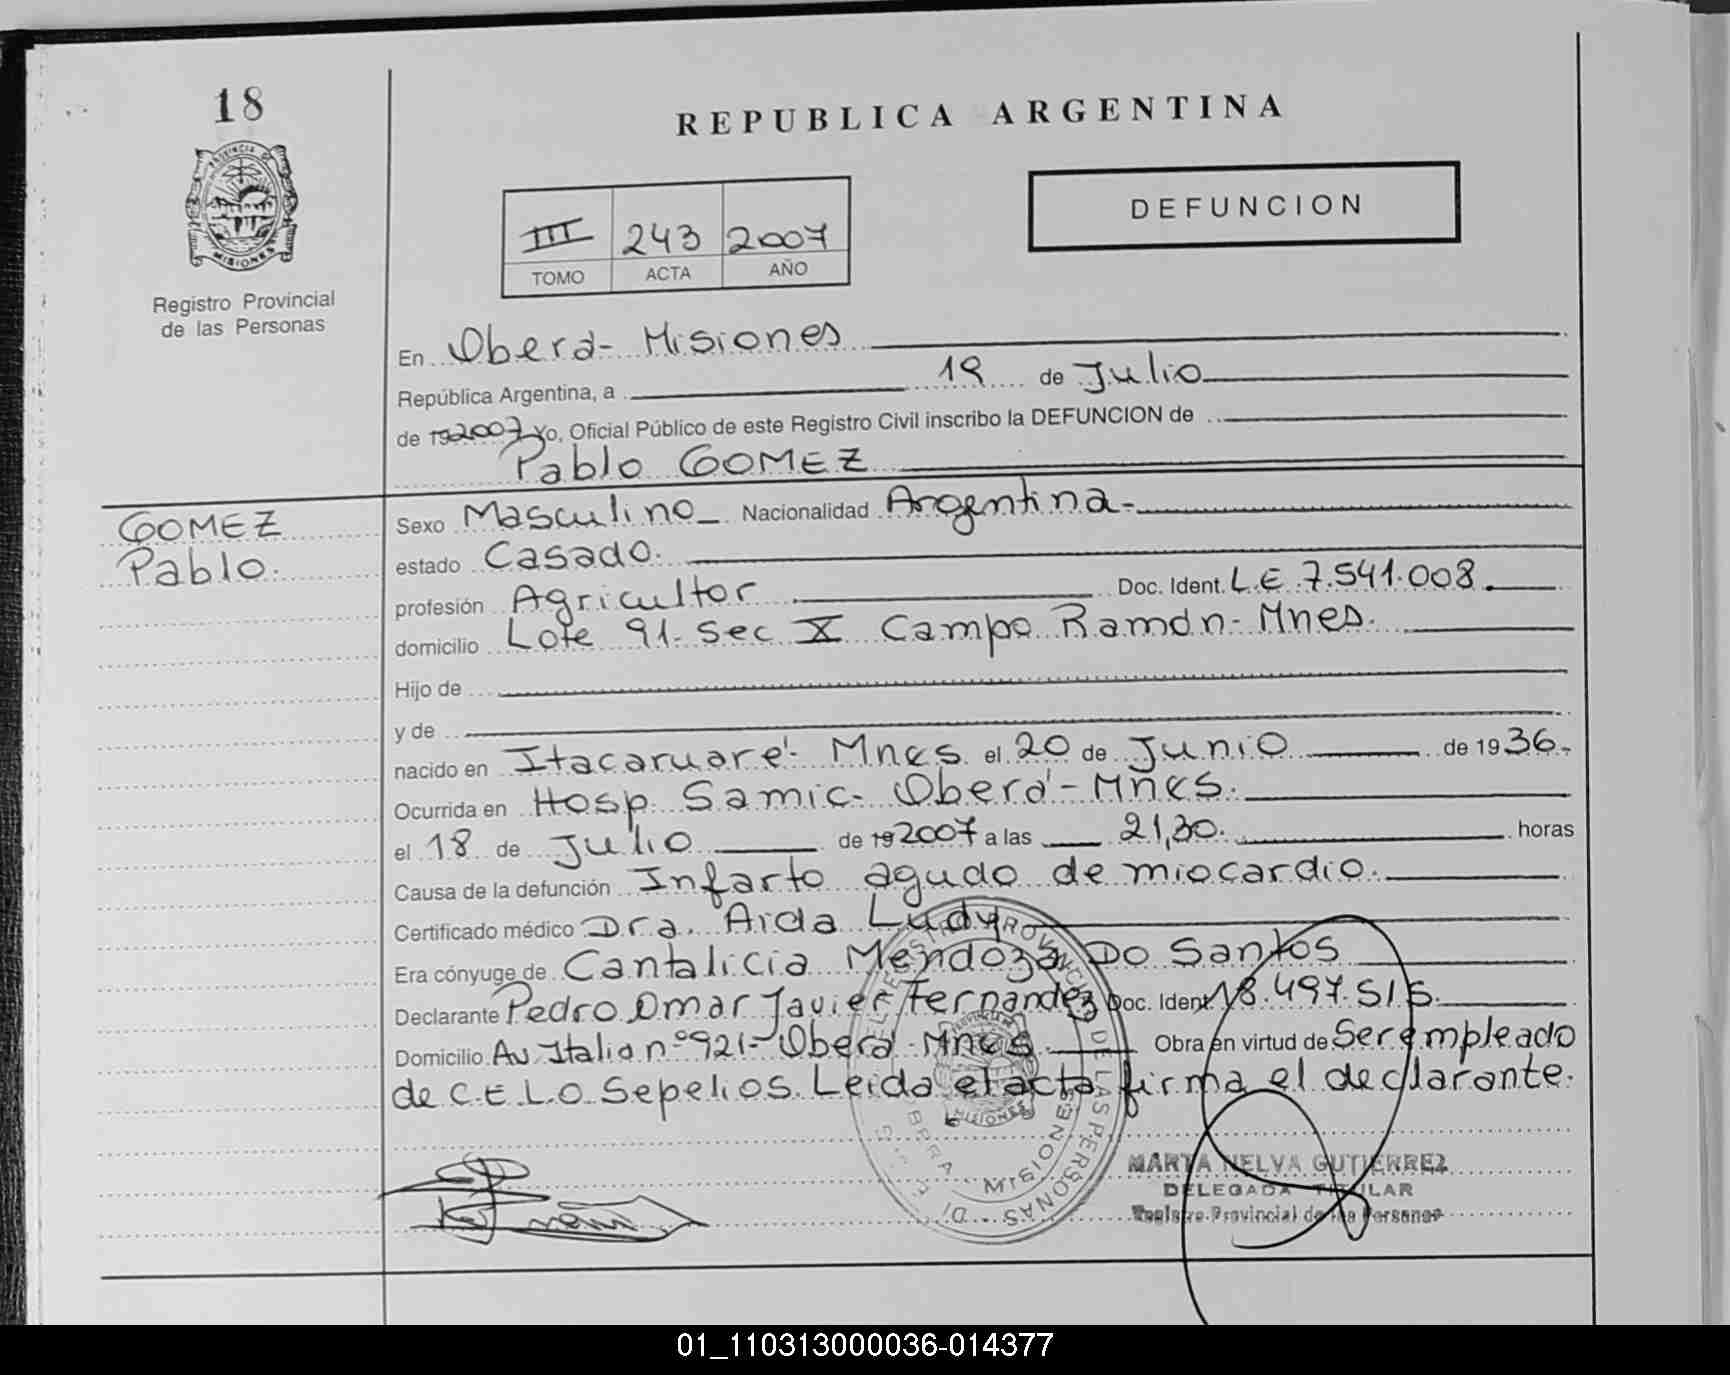 18
PROVINCIA DE
MISIONES
Registro Provincial
de las Personas
REPUBLICA ARGENTINA
III 243 2007
TOMO ACTA AÑO
DEFUNCION
En Oberá- Misiones
República Argentina, a 19 de Julio
de 19 2007 Yo, Oficial Público de este Registro Civil inscribo la DEFUNCION de
Pablo GOMEZ
GOMEZ
Pablo.
Sexo Masculino Nacionalidad Argentina-
estado Casado.
profesión Agricultor Doc. Ident. L.E 7.541.008
domicilio Lote 91- Sec X Campo Ramón- Mnes.
Hijo de
y de
nacido en Itacaruaré- Mnes el 20 de Junio de 19 36.
Ocurrida en Hosp. Samic- Oberá- Mnes.
el 18 de Julio de 19 2007 a las 21,30. horas
Causa de la defunción Infarto agudo de miocardio.
Certificado médico Dra. Aida Ludy
Era cónyuge de Cantalicia Mendoza Do Santos
Declarante Pedro Omar Javier Fernandez Doc. Ident. 18.497.515.
Domicilio Av Italia nº 921- Oberá- Mnes Obra en virtud de Ser empleado
de C.E.L.O. Sepelios. Leida el acta firma el declarante.
MARTA NELVA GUTIERREZ
DELEGADA TITULAR
Registro Provincial de las Personas
01_110313000036-014377